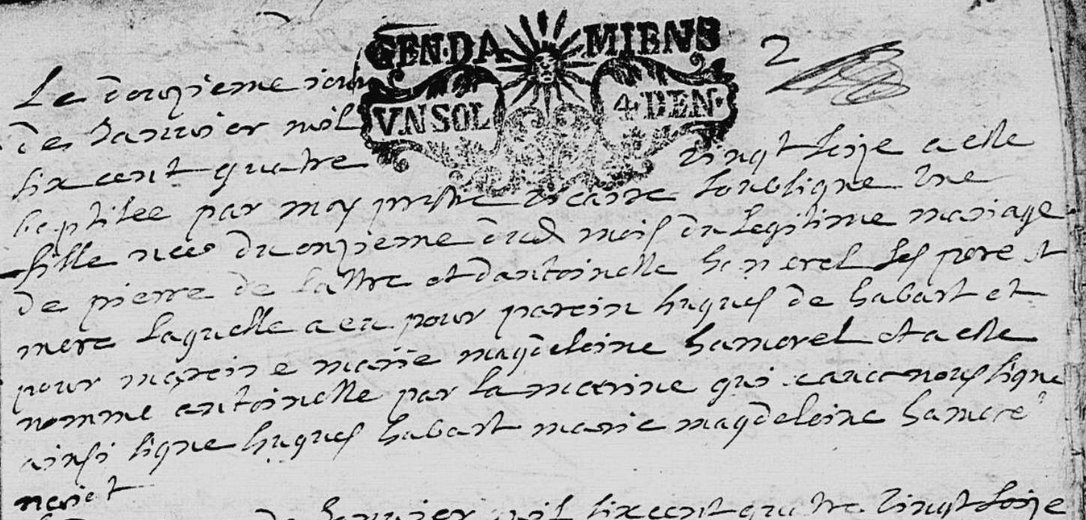 GEN·DAMIENS
VN SOL 4·DEN·
2
Le douzieme jour
de Janvier mil
six cent quatre vingt seize a este
baptisee par moy prestre vicaire soubsigne une
fille nee du onzieme dud mois du legitime mariage
de pierre de lattre et dantoinette hamerel ses pere et
mere laquelle a eu pour parein hugues de habart et
pour mareine marie magdeleine hamerel et a este
nomme antoinette par la mareine qui avec nous signe
ainsi signe hugues habart marie magdeleine hamere
de Janvier mil six cent quatre vingt seize